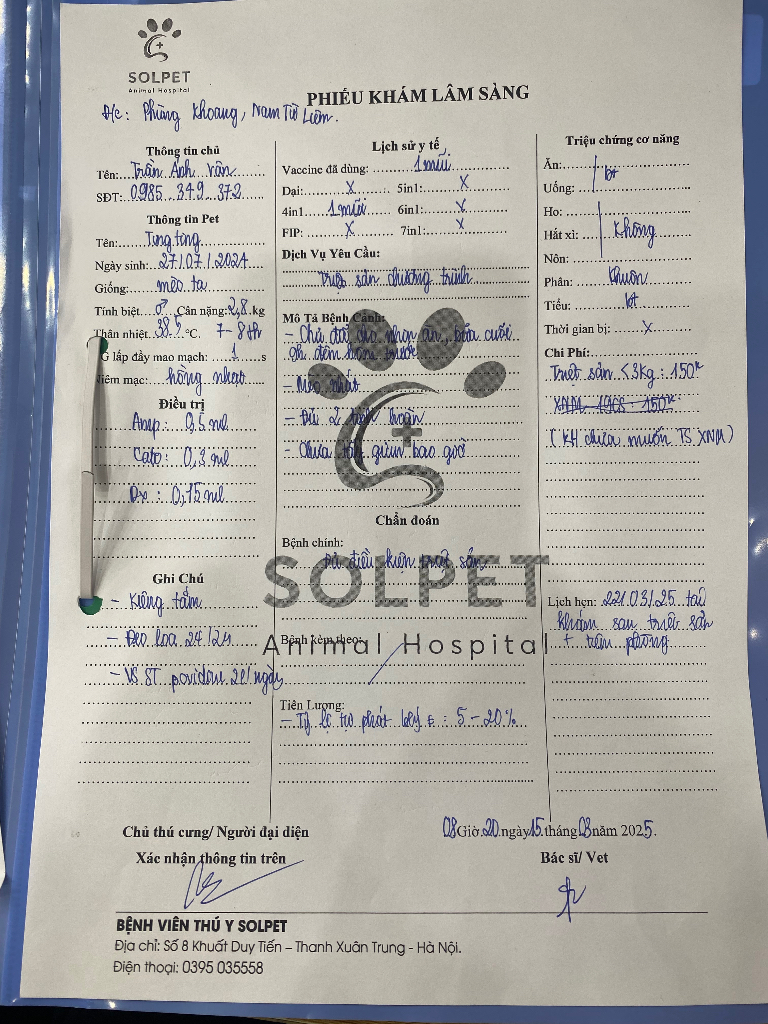 SOLPET
Animal Hospital
PHIẾU KHÁM LÂM SÀNG
Đ/c: Phùng Khoang, Nam Từ Liêm.
Thông tin chủ
Tên: Trần Anh Vân
SĐT: 0985 349 372
Thông tin Pet
Tên: Tung tăng
Ngày sinh: 27/07/2024
Giống: mèo ta
Tính biệt ♂ Cân nặng: 2,8 kg
Thân nhiệt 38.5 °C. 7-8th
lấp đầy mao mạch: 1 s
Niêm mạc: hồng nhạt
Điều trị
Amp: 0,5 ml
Cato: 0,3 ml
Dx: 0,15 ml
Ghi Chú
- Kiêng tắm
- Đeo loa 24/24
- VS ST povidone 2l/ngày
Lịch sử y tế
Vaccine đã dùng: 1 mũi
Dại: X 5in1: X
4in1 1 mũi 6in1: X
FIP: X 7in1: X
Dịch Vụ Yêu Cầu:
Triệt sản chương trình
Mô Tả Bệnh Cảnh:
- Chủ đã cho nhịn ăn, bữa cuối
đêm hôm trước
- Mèo nhát
- Đủ 2 tinh hoàn
- Chưa tẩy giun bao giờ
Chẩn đoán
Bệnh chính:
Đủ điều kiện triệt sản
SOLPET
Animal Hospital
Bệnh kèm theo:
Tiên Lượng:
- Tỷ lệ tự phát : 5-20%
Triệu chứng cơ năng
Ăn:
Uống: bt
Ho:
Hắt xì: Không
Nôn:
Phân: Khuôn
Tiểu: bt
Thời gian bị: X
Chi Phí:
Triệt sản <3kg: 150k
(KH chưa muốn TS XNM)
Lịch hẹn: 22/03/25 tái
khám sau triệt sản
+ tiêm phòng
Chủ thú cưng/ Người đại diện
Xác nhận thông tin trên
08 Giờ 20 ngày 15 tháng 03 năm 2025.
Bác sĩ/ Vet
BỆNH VIÊN THÚ Y SOLPET
Địa chỉ: Số 8 Khuất Duy Tiến – Thanh Xuân Trung - Hà Nội.
Điện thoại: 0395 035558